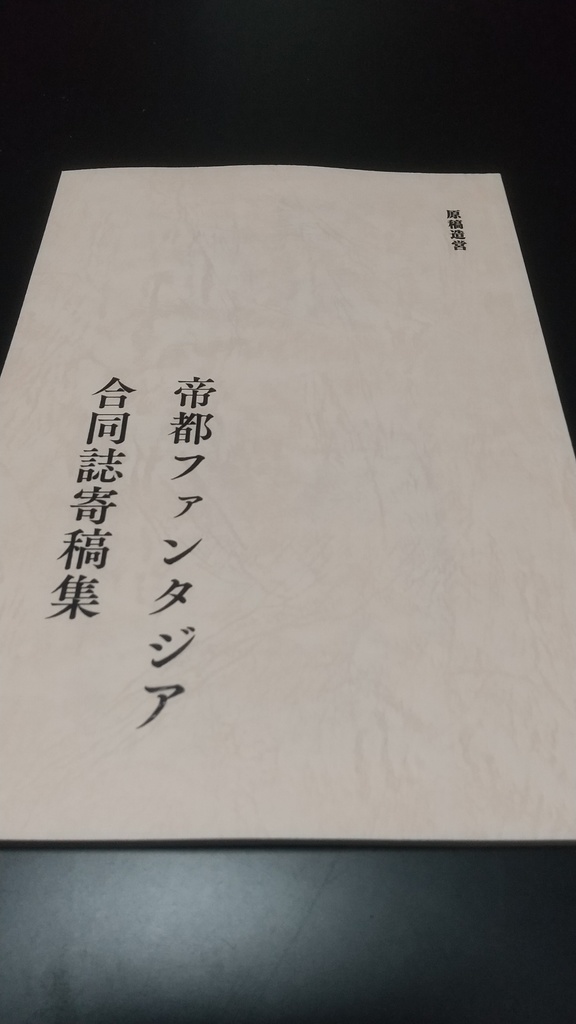 原稿造営
帝都ファンタジア
合同誌寄稿集